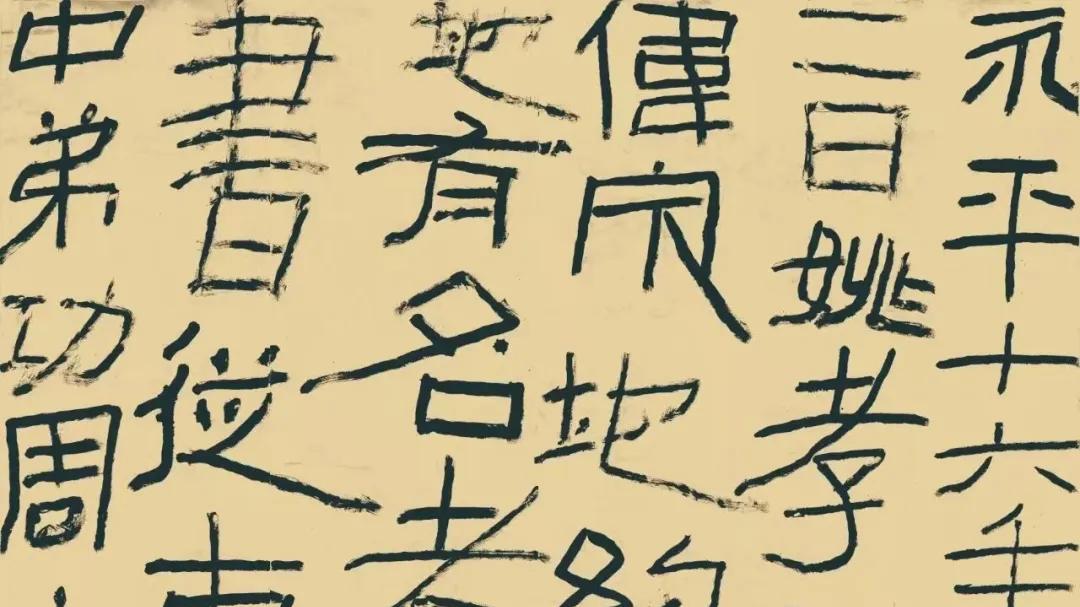 永平十六年
二日姚孝
偉冢地約
地有名者
書從事
中弟功周